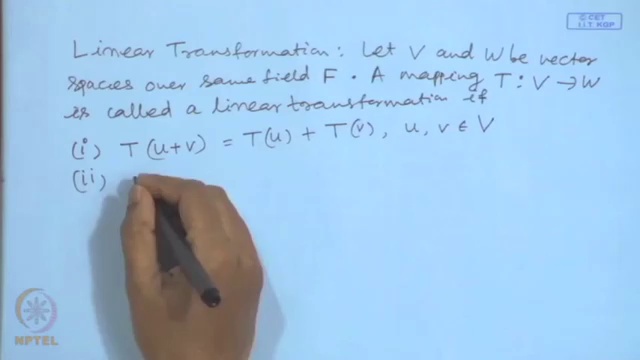 © CET
I.I.T. KGP
Linear Transformation: Let V and W be vector
spaces over same field F. A mapping T: V → W
is called a linear transformation if
(i) T(u+v) = T(u) + T(v), u, v ∈ V
(ii)
NPTEL